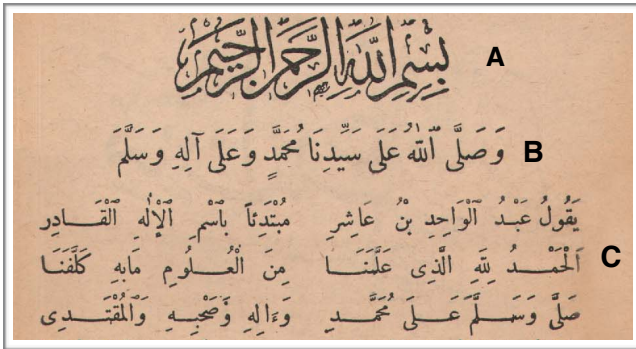 بِسْمِ اللَّهِ الرَّحْمَنِ الرَّحِيمِ A
وَصَلَّى اللَّهُ عَلَى سَيِّدِنَا مُحَمَّدٍ وَعَلَى آلِهِ وَسَلَّمَ B
يَقُولُ عَبْدُ الْوَاحِدِ بْنُ عَاشِرِ مُبْتَدِئاً بِاسْمِ الْإِلٰهِ الْقَادِرِ
اَلْحَمْدُ لِلَّهِ الَّذِى عَلَّمَنَا مِنَ الْعُلُومِ مَابِهِ كَلَّفَنَا C
صَلَّى وَسَلَّمَ عَلَى مُحَمَّدِ وَءَالِهِ وَصَحْبِهِ وَالْمُقْتَدِى